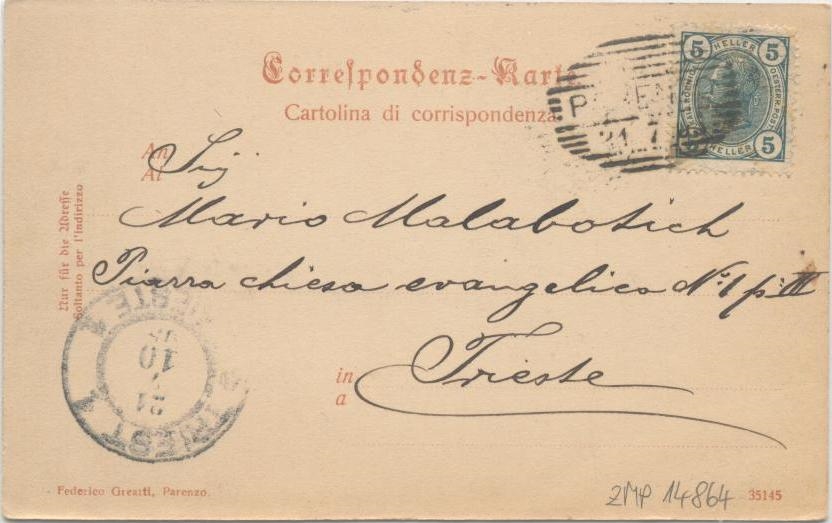 Correspondenz-Karte
Cartolina di corrispondenza
5 HELLER 5
KAIS. KOENIGL. OESTERR. POST
5 HELLER 5
21 7
An
Al
Sig
Mario Malabotich
Piazza chiesa evangelica No 1 p. III
in
a
Trieste
Nur für die Adresse
Soltanto per l'indirizzo
TRIEST 1
21
10
TRIESTE 1
Federico Greatti, Parenzo.
ZMP 14864
35145